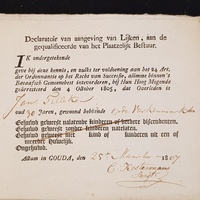 Declaratoir van aangeving van Lijken, aan de
gequalificeerde van het Plaatselijk Bestuur.
IK ondergeteekende
geve bij deze kennis, en zulks ter voldoening aan het 14 Art.
der Ordonnantie op het Recht van Successie, alomme binnen 't
Bataafsch Gemeenebest intevorderen, bij Hun Hoog Mogende
gearresteerd den 4 October 1805, dat Overleden is
Jan
oud 30 Jaren, gewoond hebbende
Gehuwd geweest nalatende kinderen of verdere discendenten.
Gehuwd geweest zonder kinderen natelaten.
Gehuwd geweest met kind of kinderen uit een of
meerder Huwelijk.
Ongehuwd.
Actum in GOUDA, den 25 Maart 1807